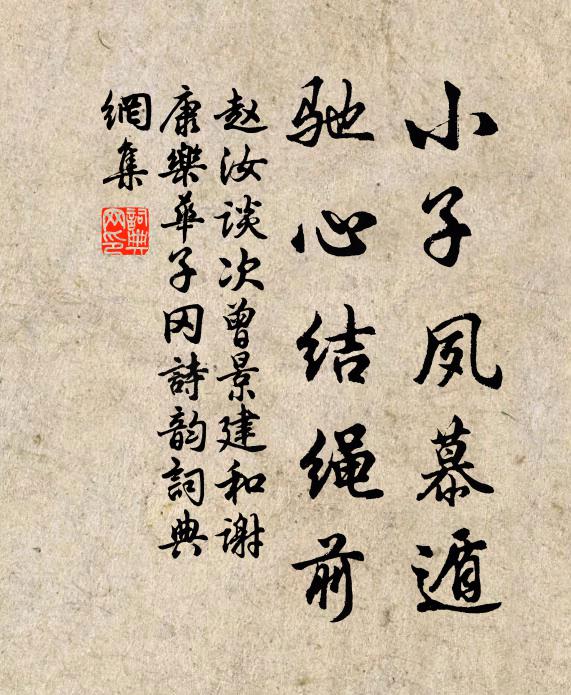 小子夙慕遁
驰心结绳前
赵汝谈次曾景建和谢
康樂華子冈詩韵詞典
網集
詞典網印